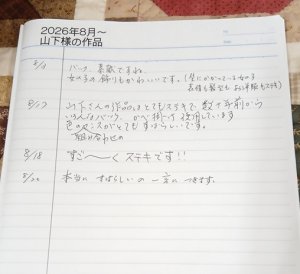 2026年8月～
山下様の作品
8/9 バッグ 素敵ですね。
女の子の飾りもかわいいです。(壁にかかっている女の子
表情も髪型も お洋服もステキ)
8/17 山下さんの作品はとてもステキで 数十年前から
いろんなバッグ、かべ掛けは 使用しています
色のセンスがとても すばらしいです。
組み合わせの
8/18 すご～～く ステキです!!
8/20 本当に すばらしいの 一言に つきます。